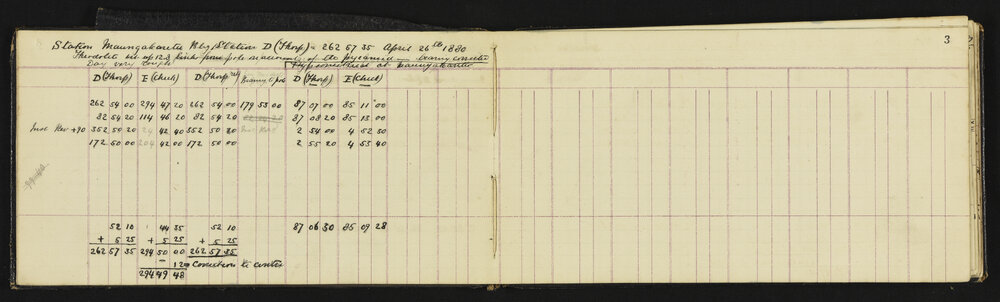 3
Station Maungakawa Hbg Station D (Thorp) = 262 57 35 April 26th 1880
Theodolite set up 12.3 links from pole in of the pyramid — bearing corrected
Day very rough Hyp corrected at Maungakawa
D (Thorp) E (Cheek) D (Thorp) Bearing to pole D (Thorp) E (Cheek)
262 54 00 294 47 20 262 54 00 179 53 00 87 07 00 85 11 00
82 54 20 114 46 20 82 54 20 87 08 20 85 13 00
Inst Rev +90 352 50 20 24 42 40 352 50 20 Inst Rev 2 54 00 4 52 30
172 50 00 204 42 00 172 50 00 2 55 20 4 53 40
52 10 44 35 52 10 87 06 30 85 09 28
+ 5 25 + 5 25 + 5 25
262 57 35 294 50 00 262 57 35
— 12 = Correction to centre
294 49 48